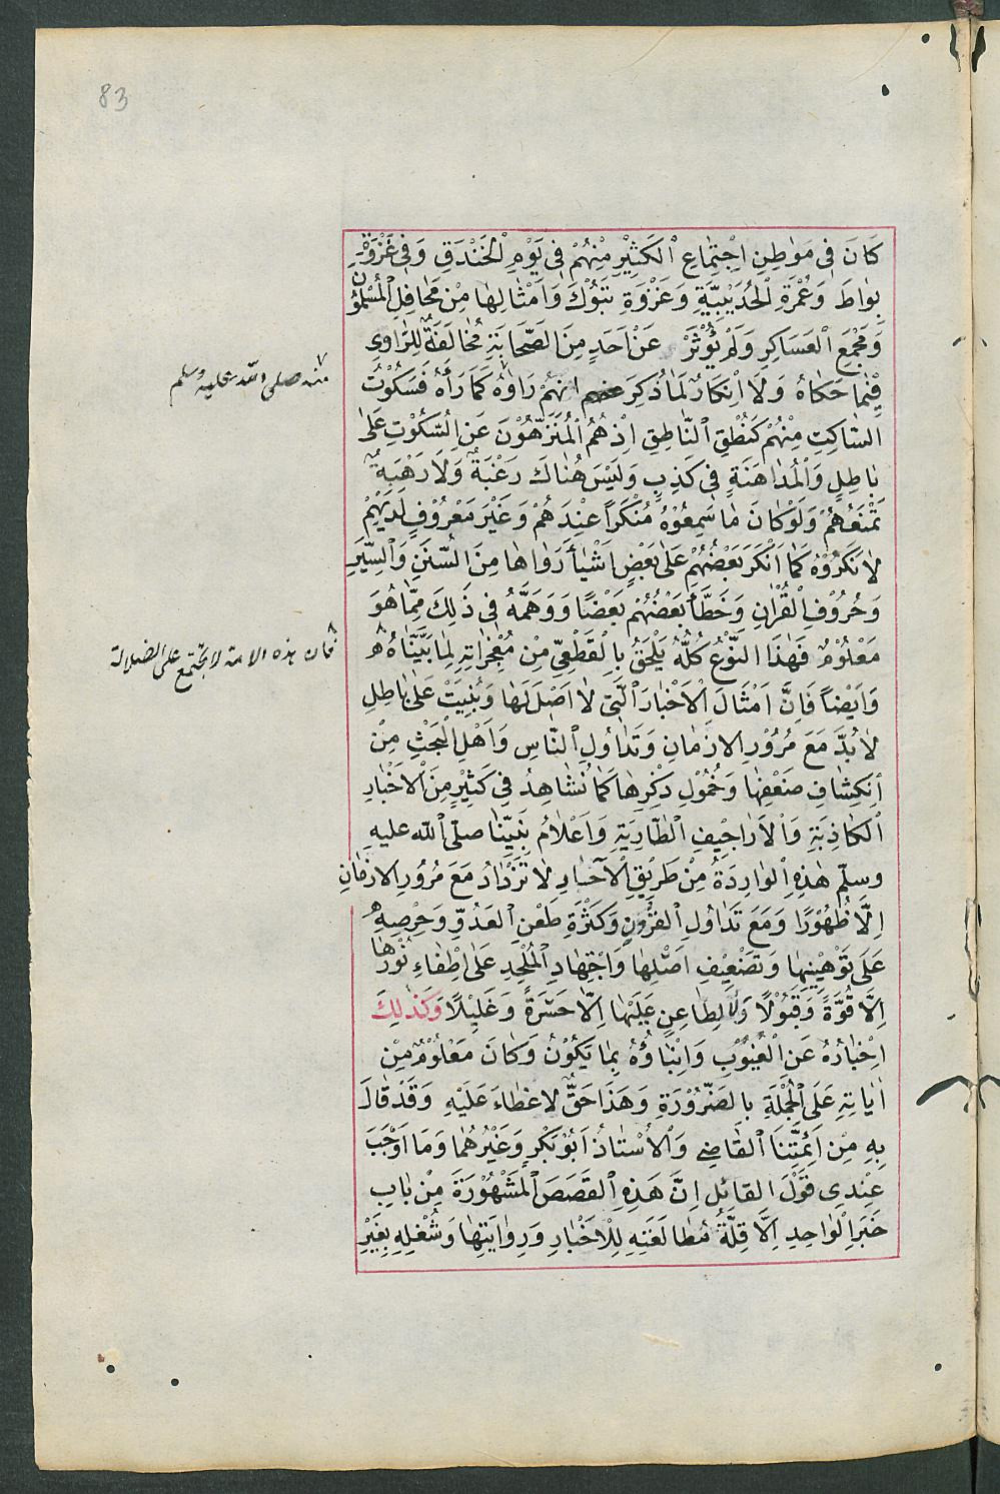 83
كَانَ فى مَوٰاطِنِ اِجْتِمٰاعِ ٱلكَثِيْرِ مِنْهُمْ فى يَوْمِ ٱلخَنْدَقِ وَفى غَزْوَةِ
بوٰاطَ وَعُمْرَةِ ٱلحُدَيْبِيَّةِ وَغَزْوَةِ تَبُوْكَ وَاَمْثٰالِهٰا مِنْ مَحٰافِلِ ٱلمُسْلِمُوْنَ
وَمَجْمَعِ ٱلعَسَاكِرِ وَلَمْ يُوْثَرْ عَنْ اَحَدٍ مِنَ الصَّحَابَةِ مُخٰالَفَةٌ لِلرّٰاوِى
فِيْمٰا حَكٰاهُ وَلَا اِنْكَارٌ لَمٰا ذُكِرَ عنهم انهُمْ رَاَوْهُ كَمٰا رَأٰهُ فَسَكُوْتُ
منه صلى الله عليه وسلم
السّٰاكِتِ مِنْهُمْ كَنُطْقِ ٱلنّٰاطِقِ اِذْ هُمُ ٱلمُنَزَّهُوْنَ عَنِ السُّكُوْتِ عَلٰى
بٰاطِلٍ وَٱلمُدٰاهَنَةِ فى كَذِبٍ وَلَيْسَ هُنٰاكَ رَغْبَةٌ وَلَا رَهْبَةٌ
تَمْنَعُهُمْ وَلَوْ كٰانَ مٰا سَمِعُوْهُ مُنْكَراً عِنْدَهُمْ وَغَيْرَ مَعْرُوْفٍ لَدَيْهِمْ
لَاَنْكَرُوْهُ كَمٰا اَنْكَرَ بَعْضُهُمْ عَلٰى بَعْضٍ اَشْيٰأَ رَوٰاهٰا مِنَ السُّنَنِ وَٱلسِّيَرِ
وَحُرُوْفِ ٱلقُرْاٰنِ وَخَطَّأَ بَعْضُهُمْ بَعْضًا وَوَهَّمَهُ فى ذٰلِكَ مِمّٰا هُوَ
مَعْلُوْمٌ فَهٰذَا النَّوْعُ كُلُّهُ يَلْحَقُ بِالْقَطْعِىِّ مِنْ مُعْجِزٰاتِهِ لِمٰا بَيَّنّٰاهُ
فان هذه الامة لا تجتمع على الضلالة
وَاَيْضاً فَاِنَّ اَمْثَالَ ٱلاَخْبٰارَ ٱلَّتِى لٰا اَصْلَ لَهٰا وَبُنِيَتْ عَلٰى بٰاطِلٍ
لٰا بُدَّ مَعَ مُرُوْرِ الازْمَانِ وَتَدٰاوُلِ ٱلنّٰاسِ وَاَهْلِ ٱلبَحْثِ مِنْ
اِنْكِشٰافِ ضَعْفِهٰا وَخُمُوْلِ ذِكْرِهٰا كَمٰا نُشٰاهِدُ فى كَثِيْرٍ مِنَ ٱلاَخْبٰارِ
ٱلكٰاذِبَةِ وَٱلاَرٰاجِيْفِ الطّٰارِيَةِ وَاَعْلٰامُ نَبِيِّنٰا صلّى ٱلله عليهِ
وسلّم هٰذِهِ ٱلوٰارِدَةُ مِنْ طَرِيْقِ ٱلآحٰادِ لٰا تَزْدٰادُ مَعَ مُرُوْرِ الازمٰانِ
اِلَّا ظُهُوْرًا وَمَعَ تَدٰاوُلِ ٱلقُرُوْنِ وَكَثْرَةِ طَعْنِ ٱلعَدُوِّ وَحِرْصِهِ
عَلَى تَوْهِيْنِهٰا وَتَضْعِيْفِ اَصْلِهٰا وَاجْتِهٰادِ ٱلمُلْحِدِ عَلٰى اِطْفٰاءِ نُوْرِهٰا
اِلَّا قُوَّةً وَقَبُوْلًا وَلَا لِطٰاعِنٍ عَلَيْهٰا اِلَّا حَسْرَةً وَغَلِيْلًا وَكَذٰلِكَ
اِخْبٰارُهُ عَنِ ٱلغُيُوْبِ وَاِنْبٰاؤُهُ بِمٰا يَكُوْنُ وَكَانَ مَعْلُوْمٌ مِنْ
اٰيٰاتِهِ عَلَى ٱلجُمْلَةِ بالضَّرُوْرَةِ وَهَذٰا حَقٌّ لاغِطٰاءَ عَلَيْهِ وَقَدْ قٰالَ
بِهِ مِنْ اَئِمَّتِنَا ٱلقٰاضِى وَٱلاُسْتٰاذُ اَبُوْ بَكْرٍ وَغَيْرُهُمٰا وَمَا اَوْجَبَ
عِنْدِى قَوْلَ القَائلِ اِنَّ هَذِهِ ٱلقَصَصَ ٱلمَشْهُوْرَةَ مِنْ بٰابِ
خَبَرِ ٱلوٰاحِدِ اِلَّا قِلَّةُ مُطٰالَعَتِهِ لِلْاَخْبٰارِ وَرِوٰايَتِهٰا وَشُغْلِهِ بِغَيْرِ